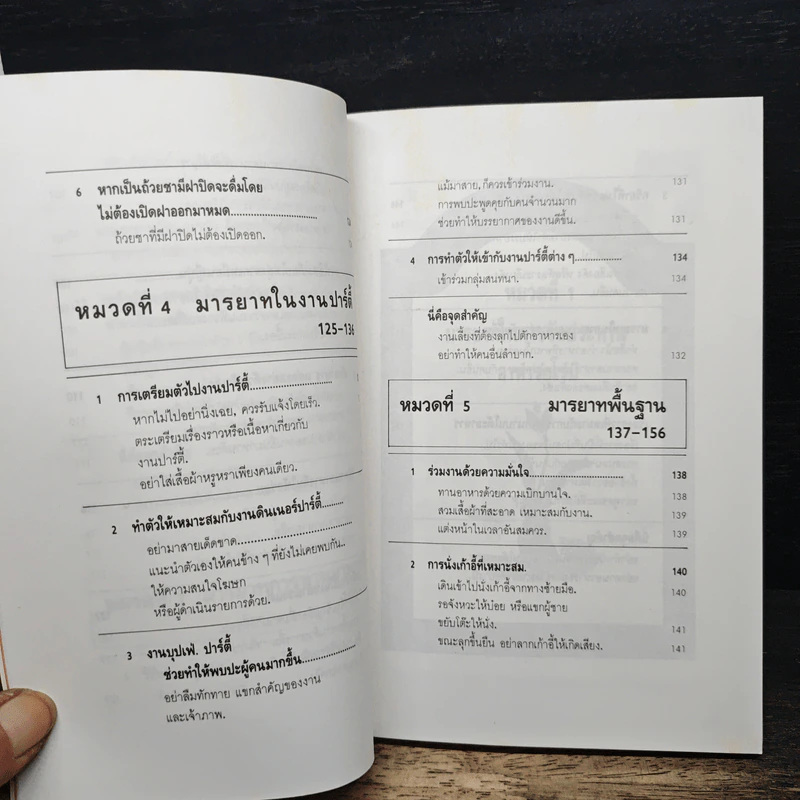 6 หากเป็นถ้วยชามีฝาปิดจะดื่มโดย
ไม่ต้องเปิดฝาออกมาหมด
ถ้วยชาที่มีฝาปิดไม่ต้องเปิดออก.
หมวดที่ 4 มารยาทในงานปาร์ตี้
125-136
1 การเตรียมตัวไปงานปาร์ตี้
หากไม่ไปอย่านิ่งเฉย, ควรรับแจ้งโดยเร็ว.
ตระเตรียมเรื่องราวหรือเนื้อหาเกี่ยวกับ
งานปาร์ตี้.
อย่าใส่เสื้อผ้าหรูหราเพียงคนเดียว.
2 ทำตัวให้เหมาะสมกับงานดินเนอร์ปาร์ตี้
อย่ามาสายเด็ดขาด
แนะนำตัวเองให้คนข้าง ๆ ที่ยังไม่เคยพบกัน..
ให้ความสนใจโฆษก
หรือผู้ดำเนินรายการด้วย.
3 งานบุปเฟ่. ปาร์ตี้
ช่วยทำให้พบปะผู้คนมากขึ้น
อย่าลืมทักทาย แขกสำคัญของงาน
และเจ้าภาพ.
แม้มาสาย, ก็ควรเข้าร่วมงาน. 131
การพบปะพูดคุยกับคนจำนวนมาก
ช่วยทำให้บรรยากาศของงานดีขึ้น. 131
4 การทำตัวให้เข้ากับงานปาร์ตี้ต่าง ๆ 134
เข้าร่วมกลุ่มสนทนา. 134
นี่คือจุดสำคัญ
งานเลี้ยงที่ต้องลุกไปตักอาหารเอง
อย่าทำให้คนอื่นลำบาก. 132
หมวดที่ 5 มารยาทพื้นฐาน
137-156
1 ร่วมงานด้วยความมั่นใจ 138
ทานอาหารด้วยความเบิกบานใจ. 138
สวมเสื้อผ้าที่สะอาด เหมาะสมกับงาน. 139
แต่งหน้าในเวลาอันสมควร. 139
2 การนั่งเก้าอี้ที่เหมาะสม. 140
เดินเข้าไปนั่งเก้าอี้จากทางซ้ายมือ. 140
รอจังหวะให้บ๋อย หรือแขกผู้ชาย
ขยับโต๊ะให้นั่ง. 141
ขณะลุกขึ้นยืน อย่าลากเก้าอี้ให้เกิดเสียง. 141